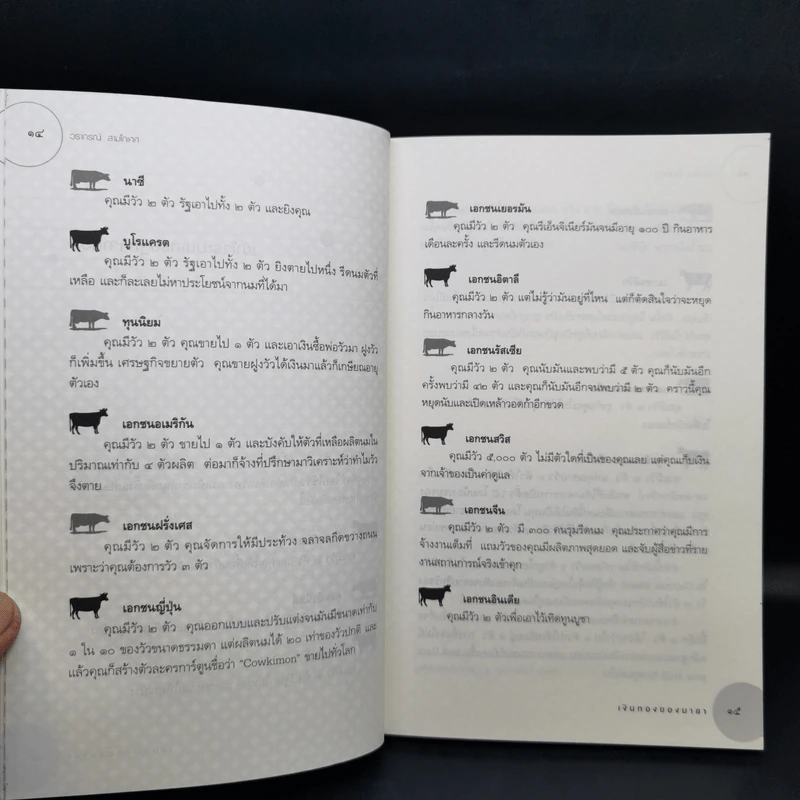 ๑๔
วรากรณ์ สามโกเศศ
นาซี
คุณมีวัว ๒ ตัว รัฐเอาไปทั้ง ๒ ตัว และยิงคุณ
บูโรแครต
คุณมีวัว ๒ ตัว รัฐเอาไปทั้ง ๒ ตัว ยิงตายไปหนึ่ง รีดนมตัวที่
เหลือ และก็ละเลยไม่หาประโยชน์จากนมที่ได้มา
ทุนนิยม
คุณมีวัว ๒ ตัว คุณขายไป ๑ ตัว และเอาเงินซื้อพ่อวัวมา ฝูงวัว
ก็เพิ่มขึ้น เศรษฐกิจขยายตัว คุณขายฝูงวัวได้เงินมาแล้วก็เกษียณอายุ
ตัวเอง
เอกชนอเมริกัน
คุณมีวัว ๒ ตัว ขายไป ๑ ตัว และบังคับให้ตัวที่เหลือผลิตนมใน
ปริมาณเท่ากับ ๔ ตัวผลิต ต่อมาก็จ้างที่ปรึกษามาวิเคราะห์ว่าทำไมวัว
จึงตาย
เอกชนฝรั่งเศส
คุณมีวัว ๒ ตัว คุณจัดการให้มีประท้วง จลาจลกีดขวางถนน
เพราะว่าคุณต้องการวัว ๓ ตัว
เอกชนญี่ปุ่น
คุณมีวัว ๒ ตัว คุณออกแบบและปรับแต่งจนมันมีขนาดเท่ากับ
๑ ใน ๑๐ ของวัวขนาดธรรมดา แต่ผลิตนมได้ ๒๐ เท่าของวัวปกติ และ
แล้วคุณก็สร้างตัวละครการ์ตูนชื่อว่า "Cowkimon" ขายไปทั่วโลก
เอกชนเยอรมัน
คุณมีวัว ๒ ตัว คุณรีเอ็นจิเนียร์มันจนมีอายุ ๑๐๐ ปี กินอาหาร
เดือนละครั้ง และรีดนมตัวเอง
เอกชนอิตาลี
คุณมีวัว ๒ ตัว แต่ไม่รู้ว่ามันอยู่ที่ไหน แต่ก็ตัดสินใจว่าจะหยุด
กินอาหารกลางวัน
เอกชนรัสเซีย
คุณมีวัว ๒ ตัว คุณนับมันและพบว่ามี ๕ ตัว คุณก็นับมันอีก
ครั้งพบว่ามี ๔๒ ตัว และคุณก็นับมันอีกจนพบว่ามี ๒ ตัว คราวนี้คุณ
หยุดนับและเปิดเหล้าวอดก้าอีกขวด
เอกชนสวิส
คุณมีวัว ๕,๐๐๐ ตัว ไม่มีตัวใดที่เป็นของคุณเลย แต่คุณเก็บเงิน
จากเจ้าของเป็นค่าดูแล
เอกชนจีน
คุณมีวัว ๒ ตัว มี ๓๐๐ คนรุมรีดนม คุณประกาศว่าคุณมีการ
จ้างงานเต็มที่ แถมวัวของคุณมีผลิตภาพสุดยอด และจับผู้สื่อข่าวที่ราย
งานสถานการณ์จริงเข้าคุก
เอกชนอินเดีย
คุณมีวัว ๒ ตัวเพื่อเอาไว้เทิดทูนบูชา
เงินทองของมายา
๑๕